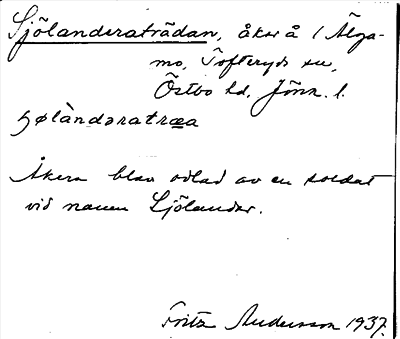 Sjölanderaträdan, åker å 1 Älga-
mo, Tofteryds sn,
Östbo hd, Jönk. l.
ʂølàndəratræa
Åkern blev odlad av en soldat
vid namn Sjölander.
Fritz Andersson 1937.